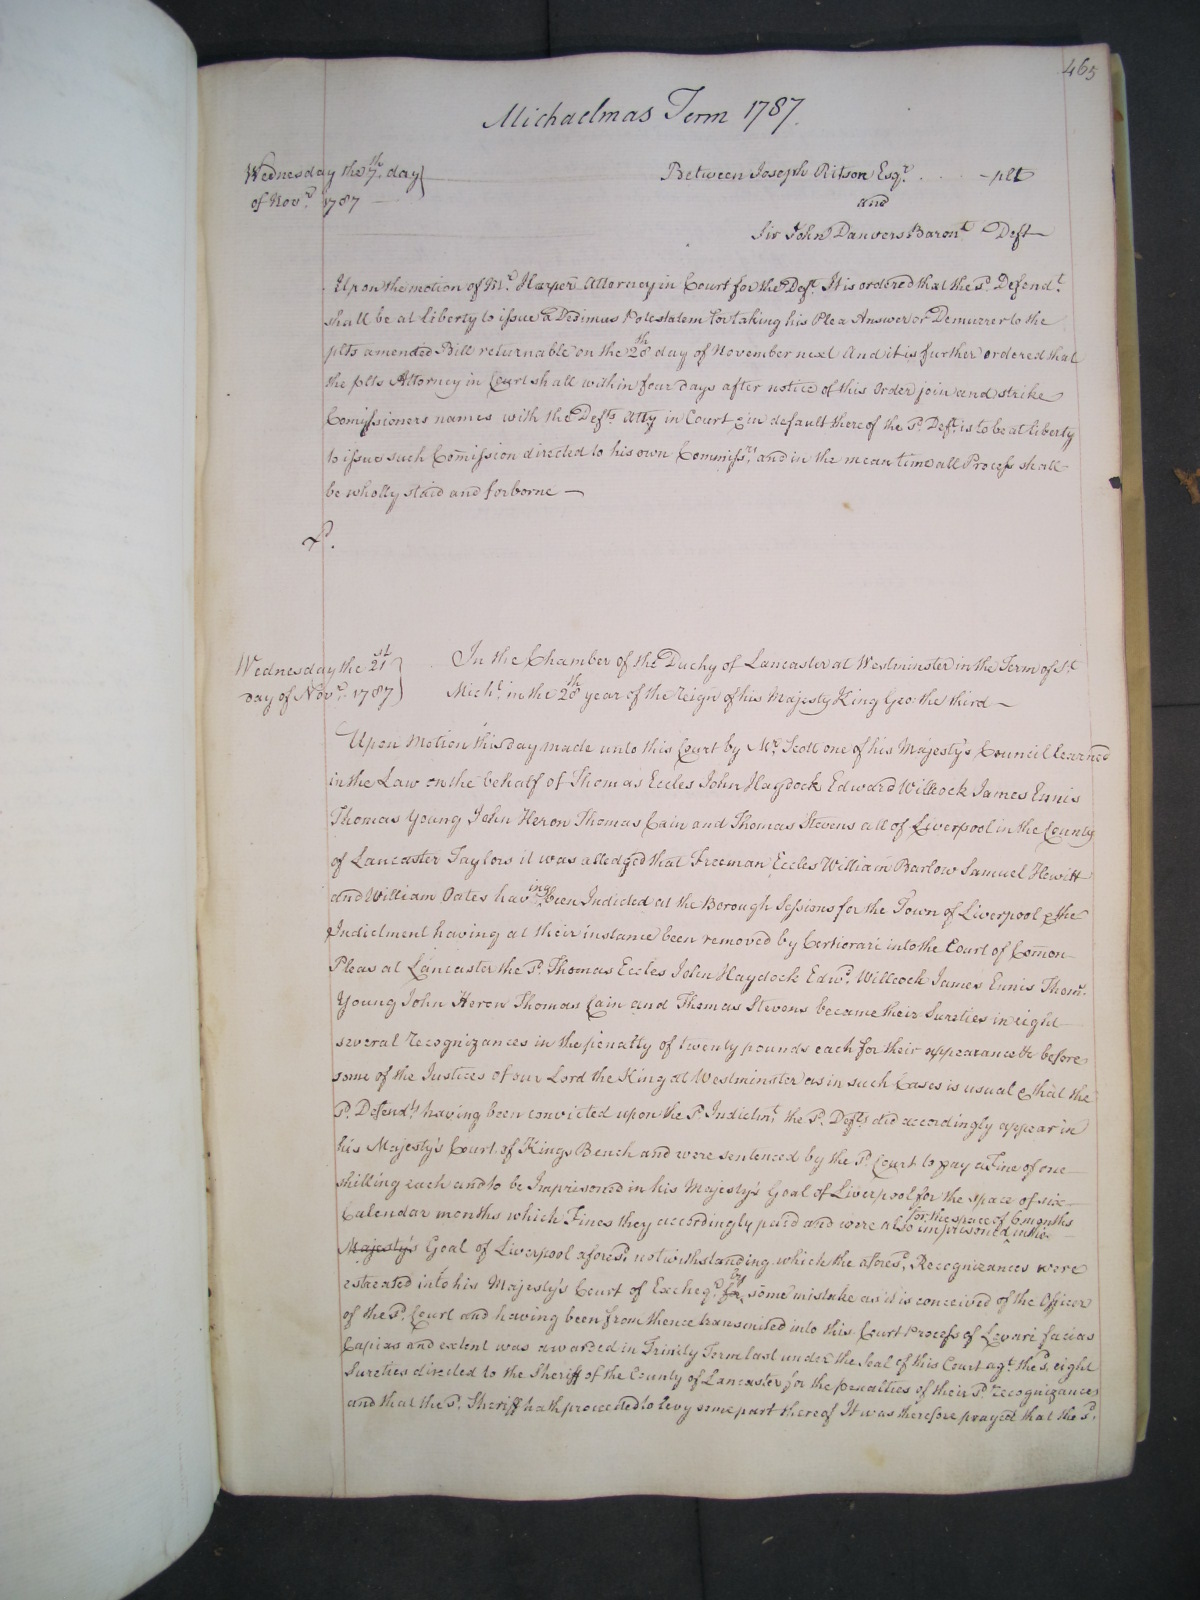 465
Michaelmas Term 1787.
Wednesday the 7th. day
of Novr. 1787
Between Joseph Ritson Esqr. . . . - plt
and
Sir John Danvers Baront. Deft
Upon the motion of Mr. Harper Attorney in Court for the Deft. It is ordered that the sd. Defendt.
shall be at liberty to issue a Dedimus Potestatem for taking his Plea Answer or Demurrer to the
plts amended Bill returnable on the 28th day of November next And it is further ordered that
the plts Attorney in Court shall within four days after notice of this Order join and strike
Comissioners names with the Defts. Atty in Court & in default thereof the sd. Deft. is to be at liberty
to issue such Comission directed to his own Commissrs. and in the mean time all Process shall
be wholly staid and forborne —
Wednesday the 21st
day of Novr. 1787
In the Chamber of the Duchy of Lancaster at Westminster in the Term of St.
Michl. in the 28th year of the reign of his Majesty King Geo: the third —
Upon Motion this day made unto this Court by Mr. Scott one of his Majesty's Council learned
in the Law on the behalf of Thomas Eccles John Haydock Edward Willcock James Ennis
Thomas Young John Heron Thomas Cain and Thomas Stevens all of Liverpool in the County
of Lancaster Taylors it was alledged that Freeman Eccles William Barlow Samuel Hewitt
and William Oates having been Indicted at the Borough Sessions for the Town of Liverpool & the
Indictment having at their instance been removed by Certiorari into the Court of Comon
Pleas at Lancaster the sd. Thomas Eccles John Haydock Edwd. Willcock James Ennis Thoms.
Young John Heron Thomas Cain and Thomas Stevens became their Sureties in eight
several recognizances in the penalty of twenty pounds each for their appearance &c before
some of the Justices of our Lord the King at Westminster as in such Cases is usual & that the
sd. Defendts. having been convicted upon the sd. Indictmt. the sd. Defts did accordingly appear in
his Majesty's Court of Kings Bench and were sentenced by the sd. Court to pay a Fine of one
shilling each and to be Imprisoned in his Majesty's Goal of Liverpool for the space of six
Calendar months which Fines they accordingly paid and were also imprisoned for the space of 6 months in the
Majesty's Goal of Liverpool aforesd. notwithstanding which the aforesd. Recognizances were
estreated into his Majesty's Court of Excheqr. for by some mistake as it is conceived of the Officer
of the sd. Court and having been from thence transmitted into this Court Process of Levari facias
Capias and extent was awarded in Trinity Term last under the Seal of this Court agt. the sd. eight
Sureties directed to the Sheriff of the County of Lancaster for the penalties of their sd. recognizances
and that the sd. Sheriff hath proceeded to levy some part thereof It was therefore prayed that the sd.